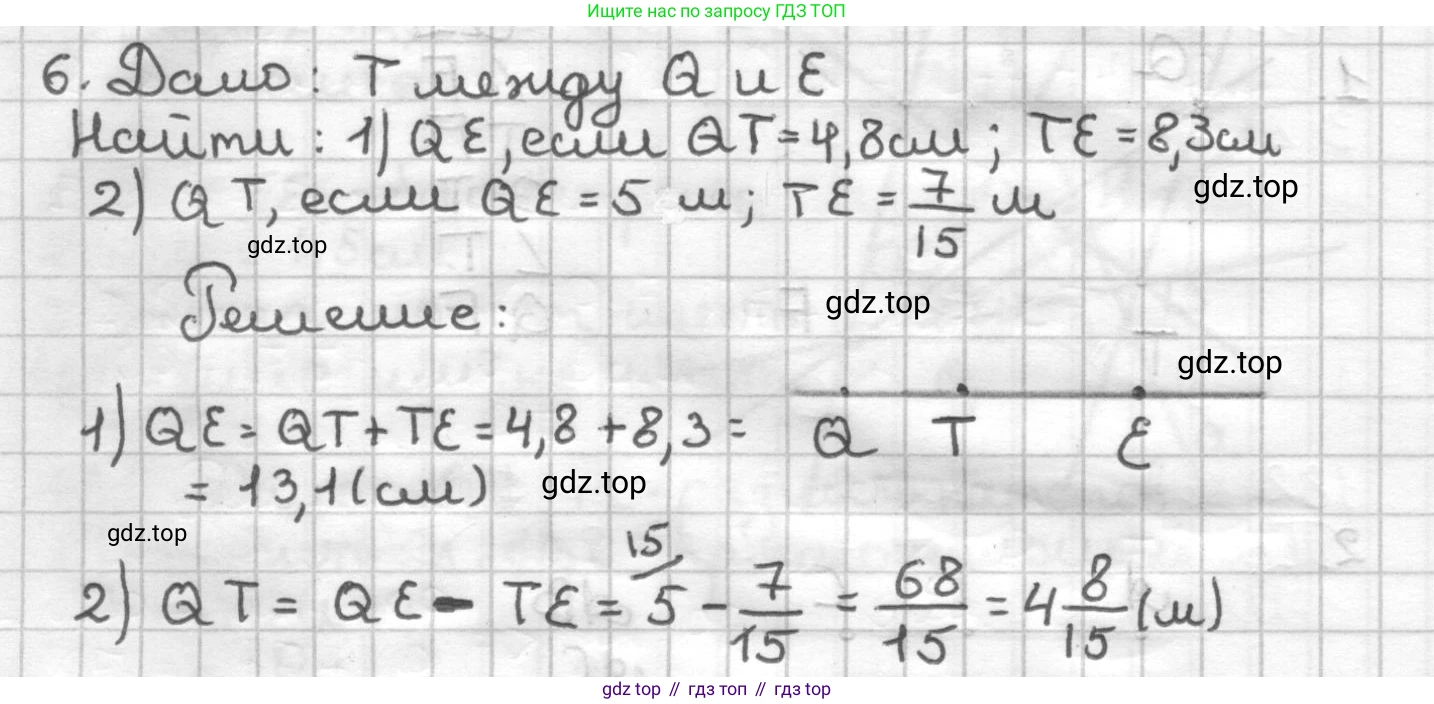 Ищите нас по запросу ГДЗ ТОП
6. Дано: T между Q и E
Найти: 1) QE, если QT = 4,8 см; TE = 8,3 см
gdz.top
2) QT, если QE = 5 м; TE = 7/15 м
gdz.top
Решение:
gdz.top
gdz.top
1) QE = QT + TE = 4,8 + 8,3 =
Q T E
= 13,1 (см)
gdz.top
gdz.top
2) QT = QE - TE = 15/ 5 - 7/15 = 68/15 = 4 8/15 (м)
gdz top // гдз топ // гдз top